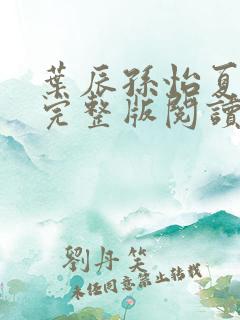 葉辰孫怡夏
完整版閱讀
劉丹笑
未经同意禁止转载